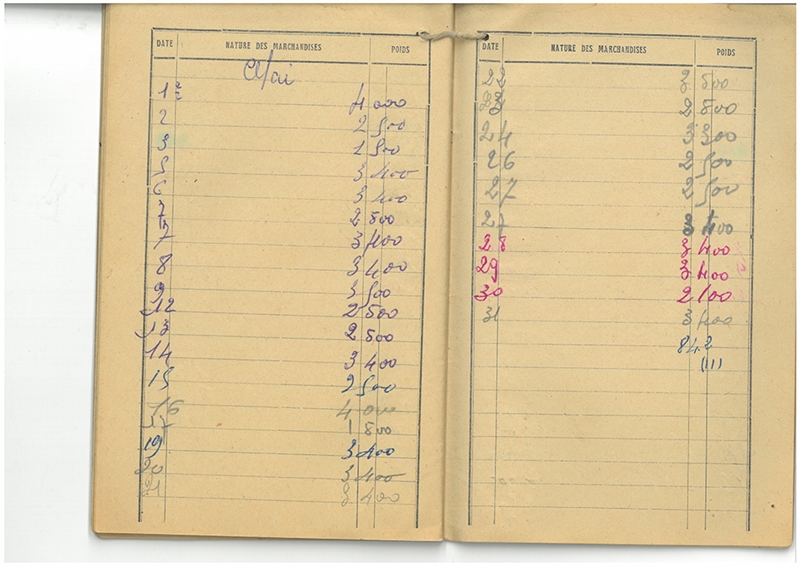 DATE NATURE DES MARCHANDISES POIDS
Mai
1er 4 000
2 2 500
3 1 500
5 3 400
6 3 400
7 2 500
7 3 400
8 3 400
9 3 500
12 2 500
13 2 500
14 3 400
15 2 500
16 4 000
1 800
19 3 400
20 3 400
21 3 400
DATE NATURE DES MARCHANDISES POIDS
22 3 500
2 800
24 3 300
26 2 500
27 2 500
27 3 400
28 3 400
29 3 400
30 2 100
31 3 400
84.2